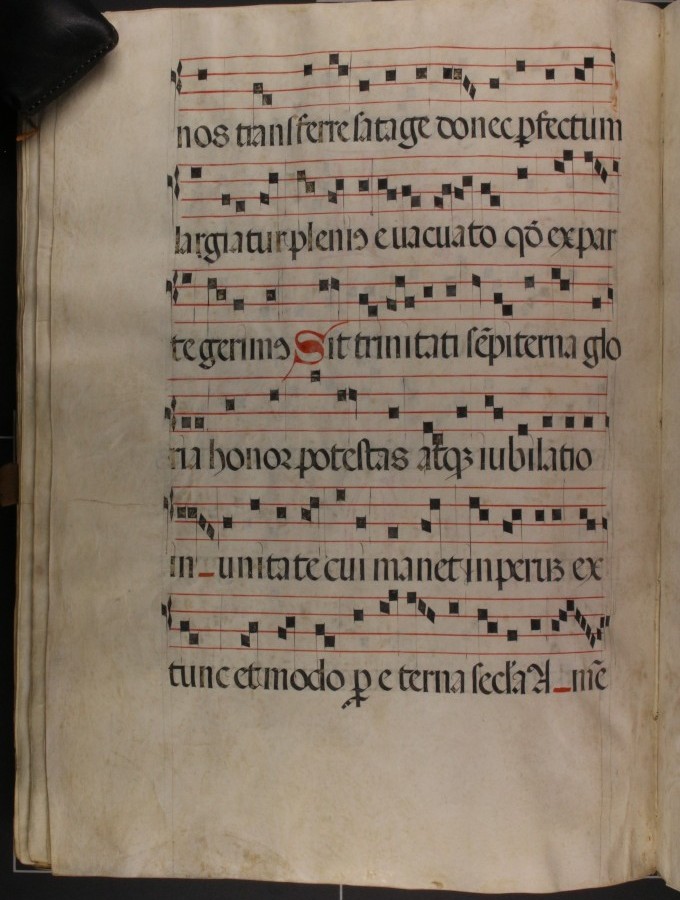 nos transferre satage donec ꝑfectum
largiatur pleniꝯ euacuato qō expar
te gerimꝯ Sit trinitati sēpiterna glo
ria honor potestas atqꝫ iubilatio
in unitate cui manet inperiuꝫ ex
tunc et modo ꝑ eterna secl'a Amē